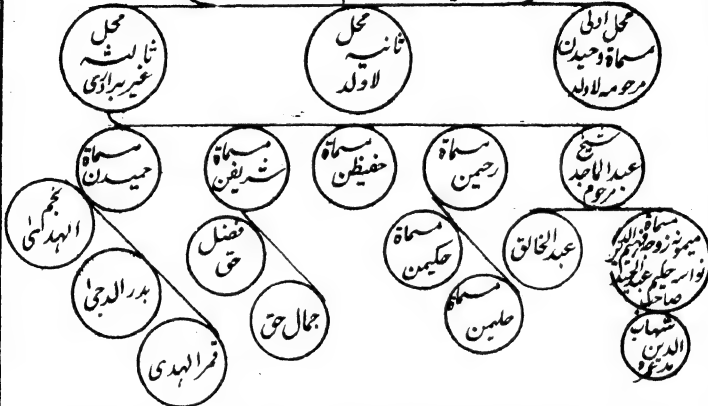 محل اولی
مسماۃ وحیدن
مرحومہ لاولد
محل
ثانیہ
لاولد
محل
ثالثہ
غیر برادری
شیخ
عبدالماجد
مرحوم
مسماۃ
رحیمن
مسماۃ
حفیظن
مسماۃ
شریفن
مسماۃ
حمیدن
مسماۃ
میمونہ زوجہ فہیم الدین
نواسہ حکیم عبدالحمید
صاحب
شہاب
الدین
مد عمرہ
عبدالخالق
مسماۃ
حکیمن
مسماۃ
حلیمن
فضل
حق
جمال حق
نجم
الہدیٰ
بدر الدجیٰ
قمر الہدی